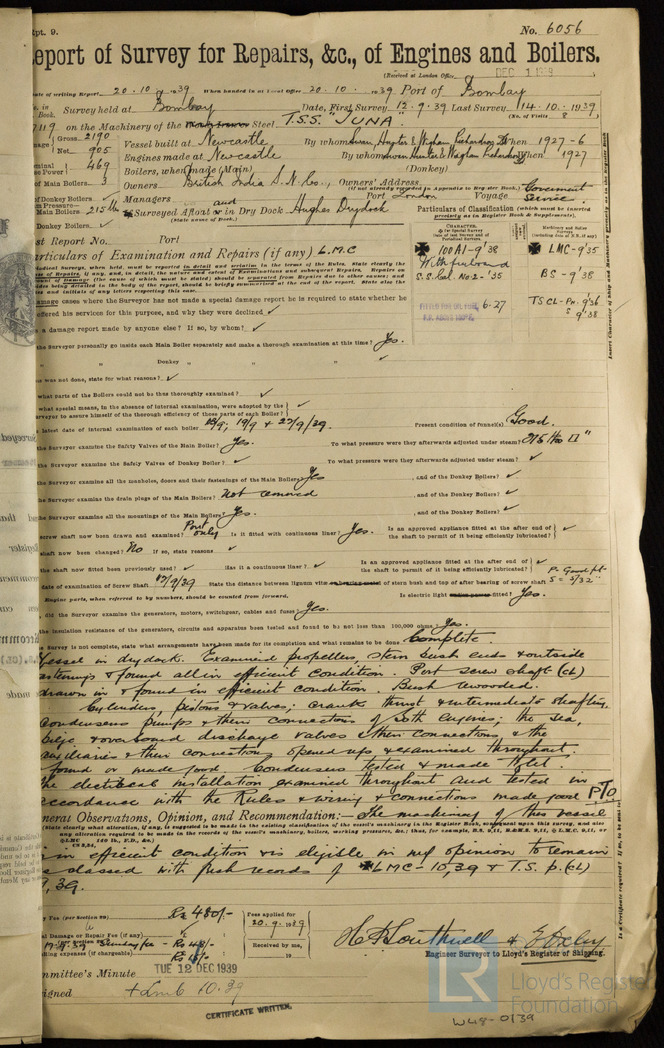 Rpt. 9.
No. 6056
Report of Survey for Repairs, &c., of Engines and Boilers.
(Received at London Office DEC 1 1939
Date of writing Report 20.10.1939 When handed in at Local Office 20.10.1939 Port of Bombay
Survey held at Bombay Date, First Survey 12.9.39 Last Survey 14.10.1939
(No. of Visits 8)
on the Machinery of the Steel T.S.S. "JUNA"
Gross 2190
Net 905
Vessel built at Newcastle By whom Swan, Hunter & Wigham Richardson Ld When 1927-6
Engines made at Newcastle By whom Swan Hunter & Wigham Richardson Ld When 1927
469
Boilers, when made (Main) (Donkey)
of Main Boilers 3
Owners British India S.N. Co., Owners' Address
(if not already recorded in Appendix to Register Book.)
of Donkey Boilers ✓
Managers Port London Voyage Government Service
Main Boilers 215 lb
Surveyed Afloat and in Dry Dock Hughes Drydock
(State name of Dock.)
Donkey Boilers ✓
Particulars of Classification (which must be inserted precisely as in Register Book & Supplements).
✠ 100 A1 - 9'38
With freeboard
S.S. Cal. No. 2 - '35
FITTED FOR OIL FUEL 6-27
F.P. ABOVE 150°F.
✠ LMC - 9'35
BS - 9'38
TS CL - Pn. 9'36
S 9'38
Last Report No. Port
Particulars of Examination and Repairs (if any) L.M.C
damage cases where the Surveyor has not made a special damage report he is required to state whether he
offered his services for this purpose, and why they were declined ✓
a damage report made by anyone else? If so, by whom? ✓
the Surveyor personally go inside each Main Boiler separately and make a thorough examination at this time? Yes.
" " Donkey " " " " ✓
was not done, state for what reasons? ✓
what parts of the Boilers could not be thus thoroughly examined? ✓
what special means, in the absence of internal examination, were adopted by the
Surveyor to assure himself of the thorough efficiency of those parts of each Boiler? ✓
latest date of internal examination of each boiler 18/9, 19/9 & 27/9/39. Present condition of funnel(s) Good.
the Surveyor examine the Safety Valves of the Main Boiler? Yes. To what pressure were they afterwards adjusted under steam? 215 lbs □"
the Surveyor examine the Safety Valves of Donkey Boiler? ✓ To what pressure were they afterwards adjusted under steam? ✓
the Surveyor examine all the manholes, doors and their fastenings of the Main Boilers? Yes , and of the Donkey Boilers? ✓
the Surveyor examine the drain plugs of the Main Boilers? Not removed , and of the Donkey Boilers? ✓
the Surveyor examine all the mountings of the Main Boilers? Yes. , and of the Donkey Boilers? ✓
screw shaft now been drawn and examined? Port only Is it fitted with continuous liner? Yes. Is an approved appliance fitted at the after end of
the shaft to permit of it being efficiently lubricated? ✓
shaft now been changed? No If so, state reasons ✓
the shaft now fitted been previously used? ✓ Has it a continuous liner? ✓ Is an approved appliance fitted at the after end of
the shaft to permit of it being efficiently lubricated? ✓
date of examination of Screw Shaft 17/9/39 State the distance between lignum vitæ of stern bush and top of after bearing of screw shaft P. Good fit. S = 5/32"
Engine parts, when referred to by numbers, should be counted from forward. Is electric light fitted? Yes.
did the Surveyor examine the generators, motors, switchgear, cables and fuses? Yes.
the insulation resistance of the generators, circuits and apparatus been tested and found to be not less than 100,000 ohms? Yes.
Survey is not complete, state what arrangements have been made for its completion and what remains to be done Complete
Vessel in drydock. Examined propellers, stern bush ends & outside
fastenings & found all in efficient condition. Port screw shaft (CL)
drawn in & found in efficient condition. Bush rewooded.
Cylinders, pistons & valves; crank thrust & intermediate shafting,
condensers pumps & their connections of both engines; the sea,
bilge & overboard discharge valves & their connections, & the
auxiliaries & their connections opened up & examined throughout.
found or made good. Condensers tested & made tight.
The electrical installation examined throughout and tested in
accordance with the Rules & wiring & connections made good PTO
General Observations, Opinion, and Recommendation:— The machinery of this vessel
(State clearly what alteration, if any, is suggested to be made in the existing classification of the vessel's machinery in the Register Book, consequent upon this survey, and also
any alteration required to be made in the records of the vessel's machinery, boilers, working pressures, &c.; thus, for example, B.S. 9,11, B.&M.S. 9,11, or L.M.C. 9,11, or
in efficient condition & is eligible in my opinion to remain
as classed with fresh records of ✠ LMC - 10,39 & T.S. p. (CL)
9,39.
Fee (per Section 29) Rs 480/-
Fees applied for
20.9.1939
Special Damage or Repair Fee (if any)
(per Section 29)
17.9.39 Sunday fee - Rs 48/-
Received by me,
19
travelling expenses (if chargeable) Rs
H P Southwell & E Oxley
Engineer Surveyor to Lloyd's Register of Shipping.
Committee's Minute TUE 12 DEC 1939
Assigned + Lmb 10.39
CERTIFICATE WRITTEN.
LR Lloyd's Register
Foundation
W48-0139